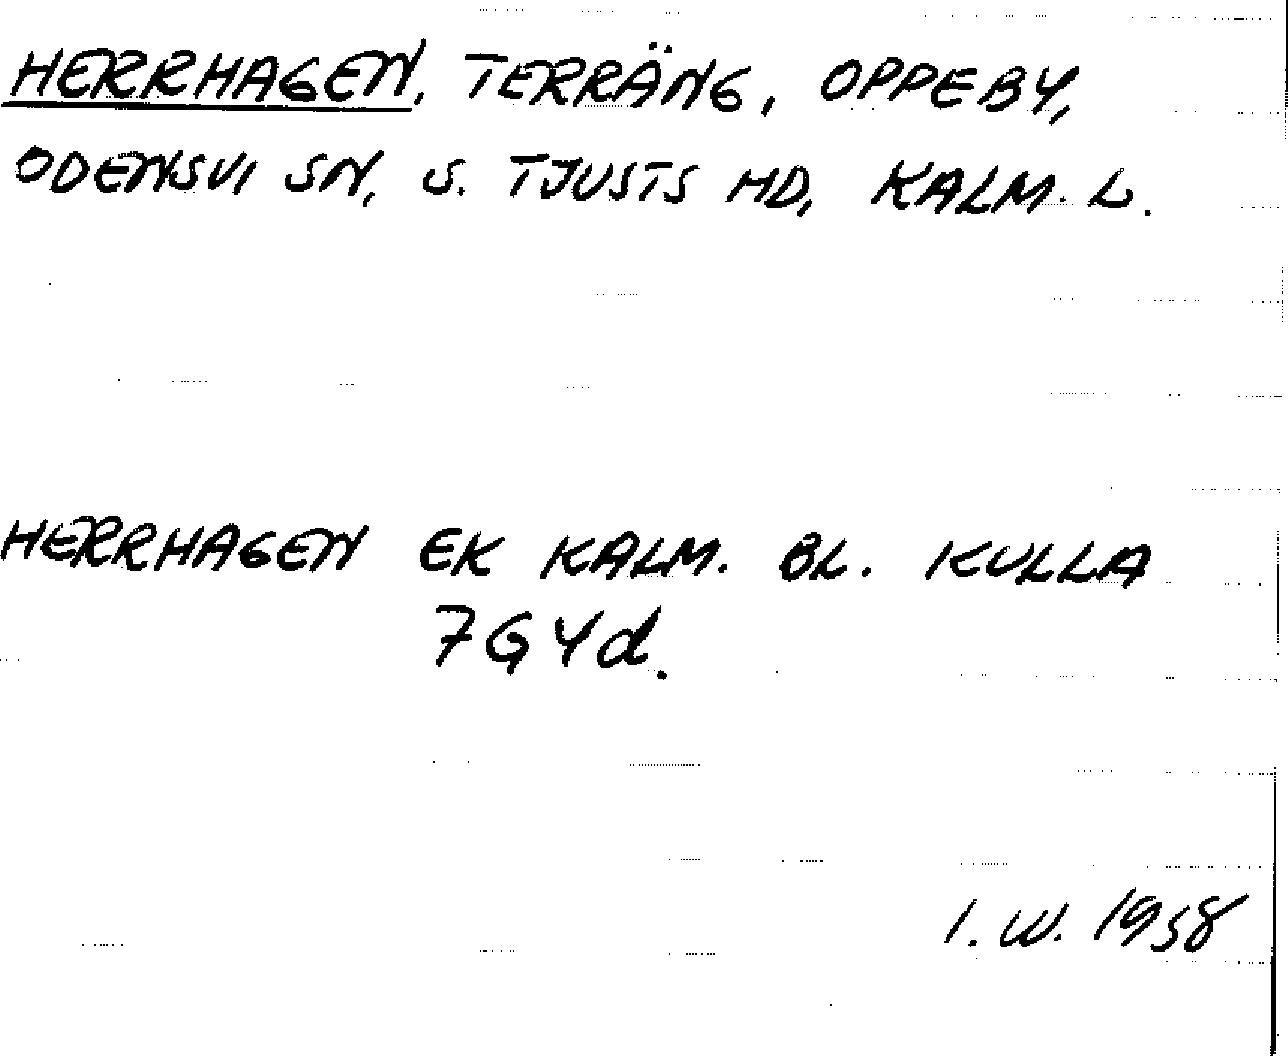 HERRHAGEN, TERRÄNG, OPPEBY,
ODENSVI SN, S. TJUSTS HD, KALM. L.
HERRHAGEN EK KALM. BL. KULLA
7G4d.
I. W. 1958